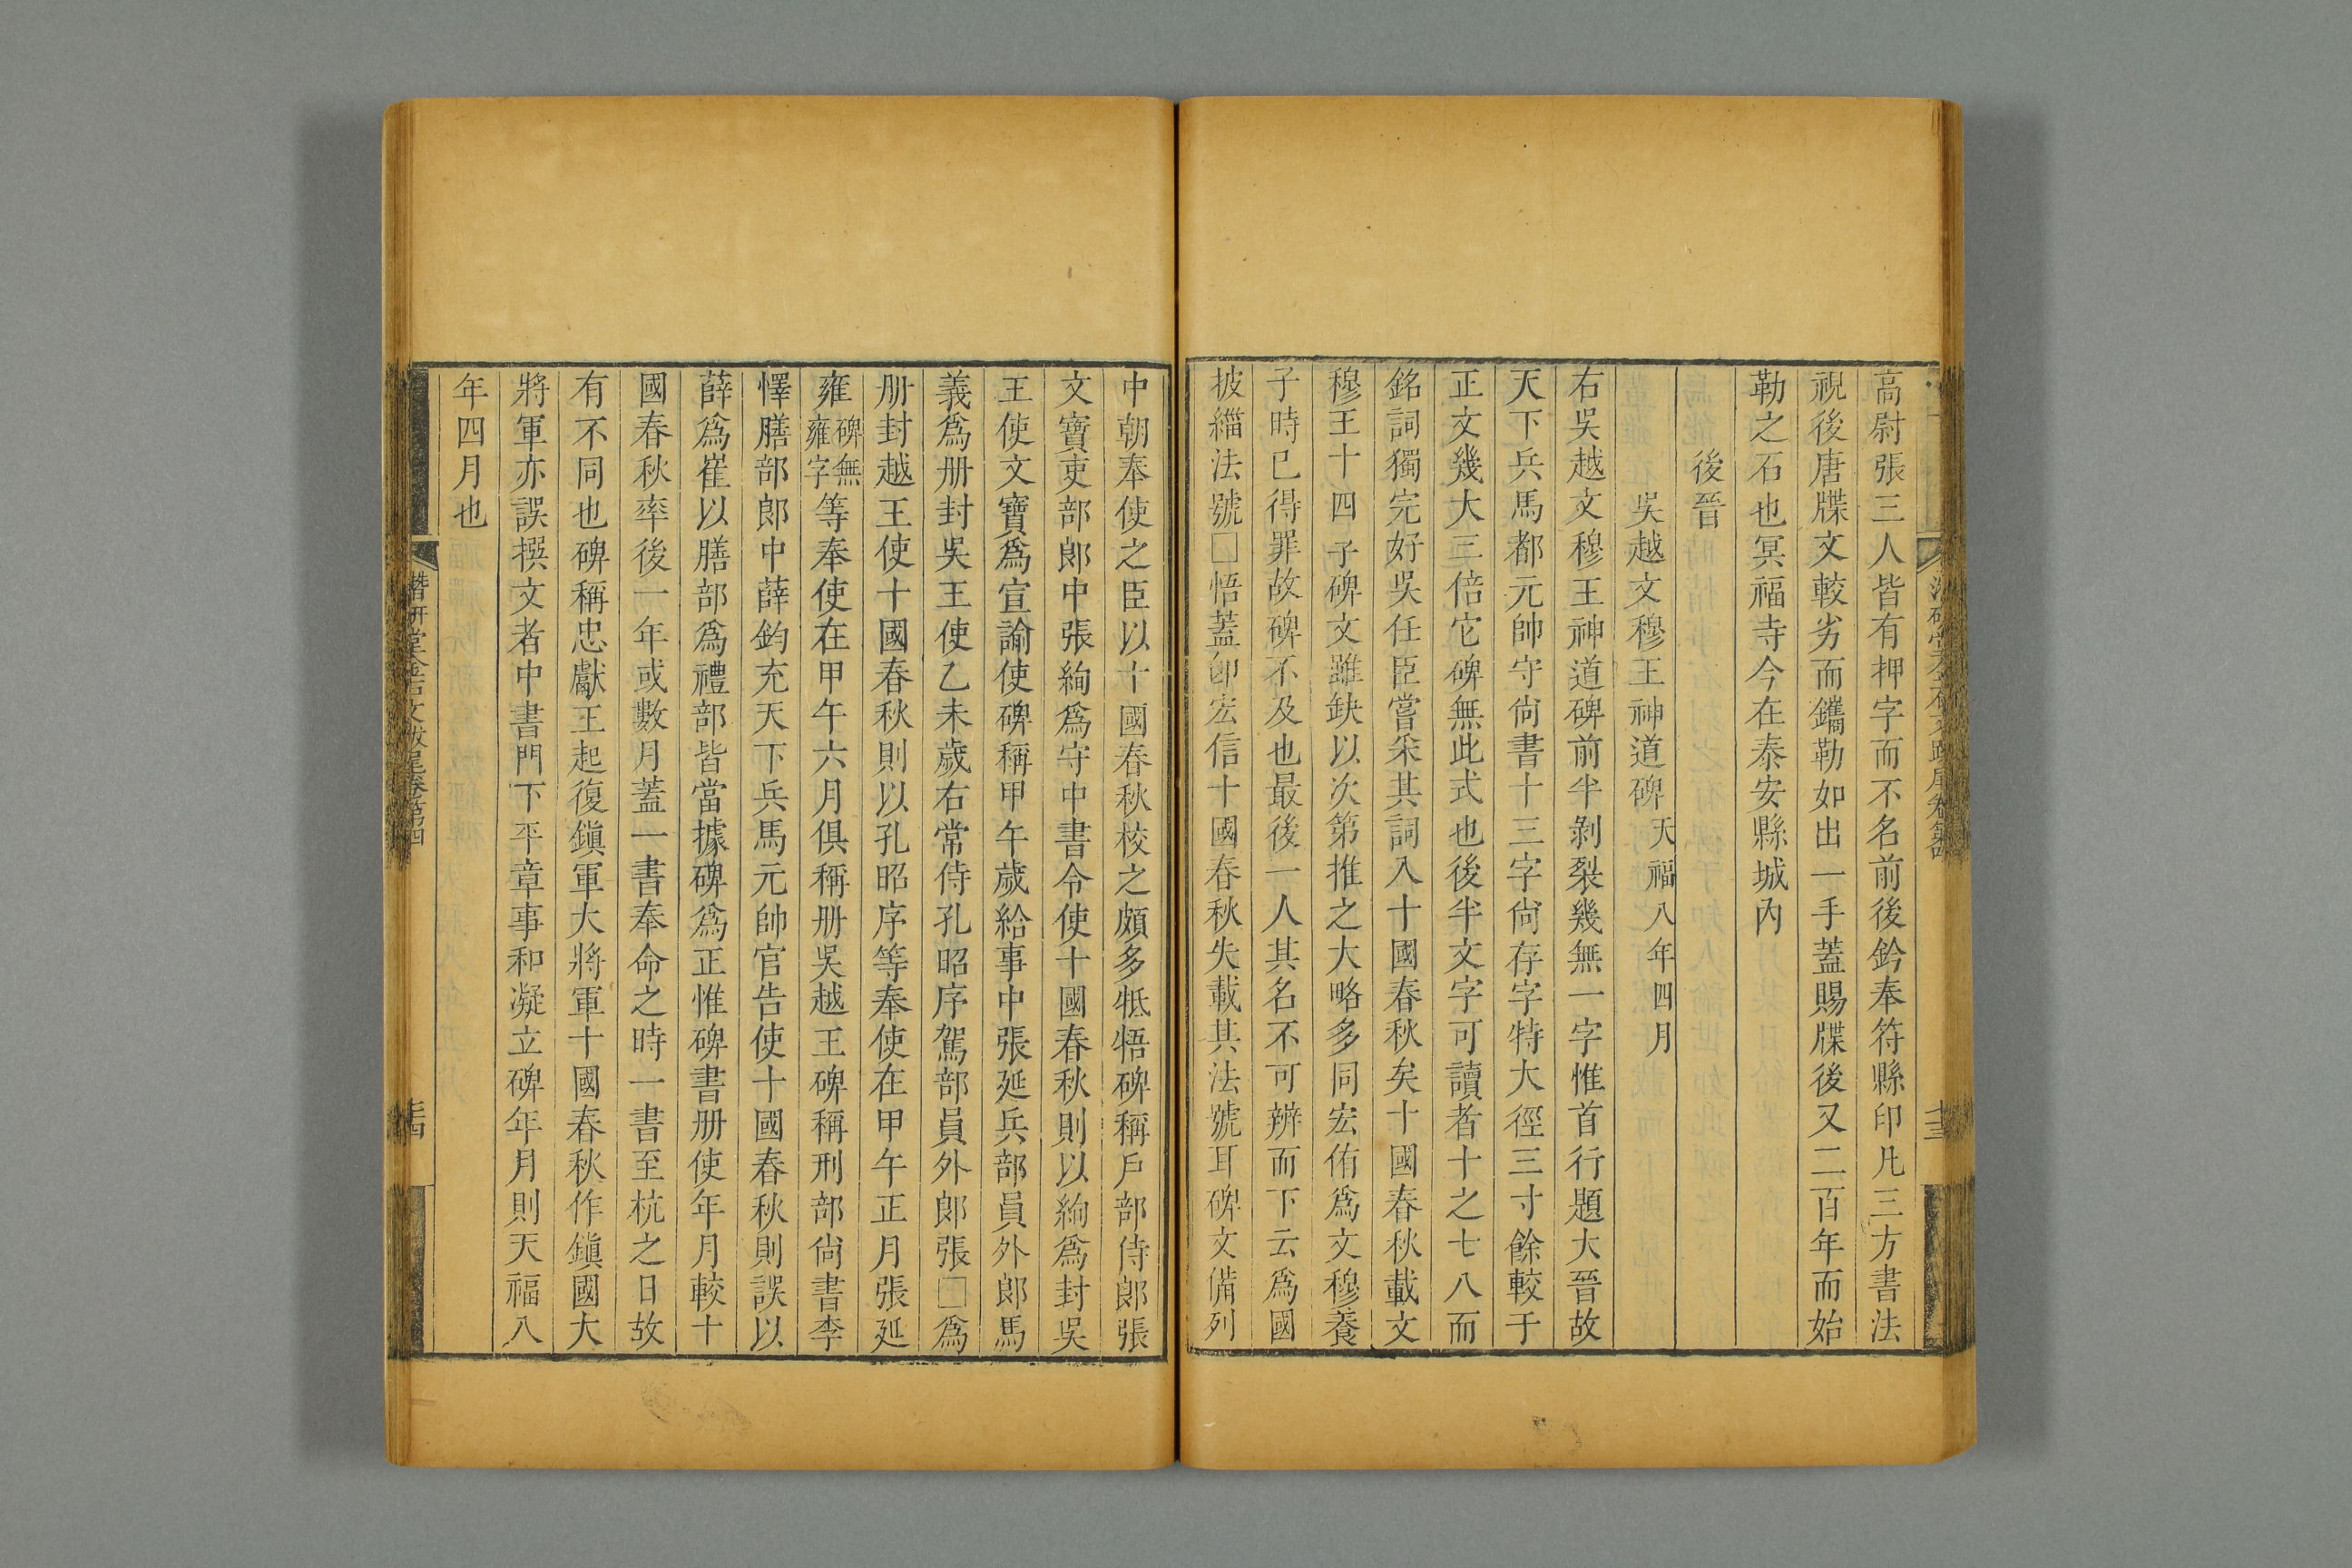 高尉張三人皆有押字而不名前後鈐奉符縣印凡三方書法
視後唐牒文較劣而鐫勒如出一手蓋賜牒後又二百年而始
勒之石也冥福寺今在泰安縣城內
後晉
吳越文穆王神道碑 天福八年四月
右吳越文穆王神道碑前半剝裂幾無一字惟首行題大晉故
天下兵馬都元帥守尙書十三字尙存字特大徑三寸餘較于
正文幾大三倍它碑無此式也後半文字可讀者十之七八而
銘詞獨完好吳任臣嘗采其詞入十國春秋矣十國春秋載文
穆王十四子碑文雖缺以次第推之大略多同宏侑爲文穆養
子時已得罪故碑不及也最後一人其名不可辨而下云爲國
披緇法號□悟蓋卽宏信十國春秋失載其法號耳碑文備列
中朝奉使之臣以十國春秋校之頗多牴牾碑稱戶部侍郞張
文寶吏部郞中張絢爲守中書令使十國春秋則以絢爲封吳
王使文寶爲宣諭使碑稱甲午歲給事中張延兵部員外郞馬
義爲册封吳王使乙未歲右常侍孔昭序駕部員外郞張□爲
册封越王使十國春秋則以孔昭序等奉使在甲午正月張延
雍碑無雍字等奉使在甲午六月俱稱册吳越王碑稱刑部尙書李
懌膳部郞中薛鈞充天下兵馬元帥官告使十國春秋則誤以
薛爲崔以膳部爲禮部皆當據碑爲正惟碑書册使年月較十
國春秋率後一年或數月蓋一書奉命之時一書至杭之日故
有不同也碑稱忠獻王起復鎭軍大將軍十國春秋作鎭國大
將軍亦誤撰文者中書門下平章事和凝立碑年月則天福八
年四月也
潛硏堂金石文跋尾卷第四